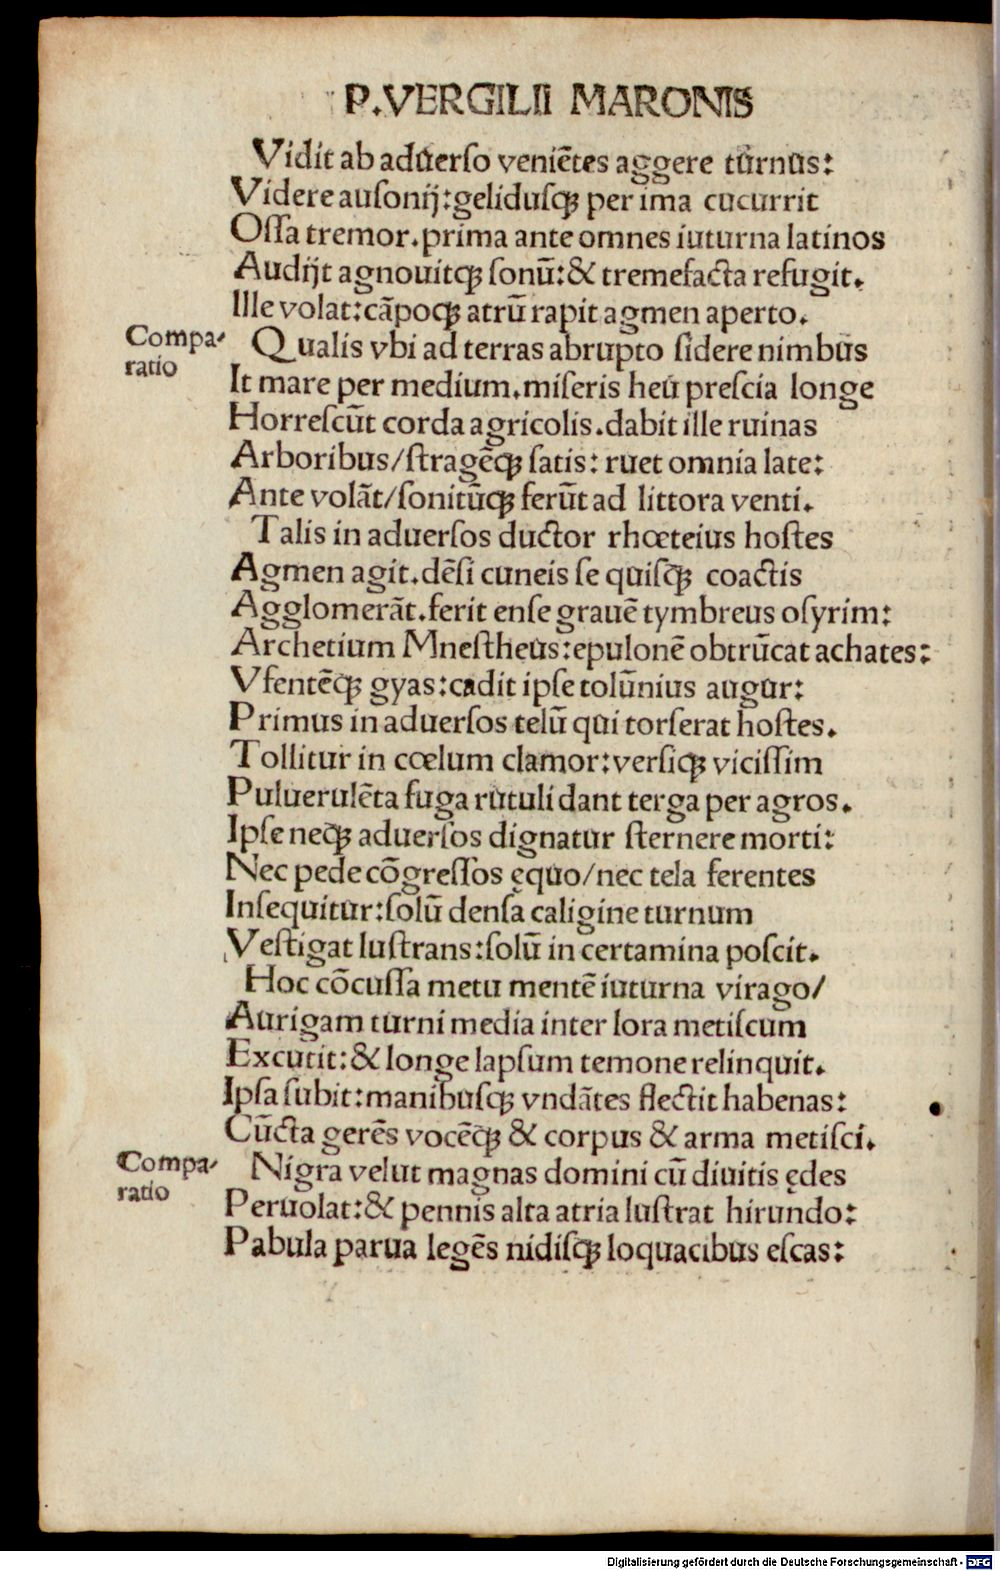 P. VERGILII MARONIS
Vidit ab aduerſo veniẽtes aggere turnus:
Videre auſonij: geliduſqꝫ per ima cucurrit
Oſſa tremor. prima ante omnes iuturna latinos
Audijt agnouitqꝫ ſonũ: & tremefacta refugit.
Ille volat: cãpoqꝫ atrũ rapit agmen aperto.
Compa-
ratio
Qualis vbi ad terras abrupto ſidere nimbus
It mare per medium. miſeris heu preſcia longe
Horreſcũt corda agricolis. dabit ille ruinas
Arboribus/ ſtragẽqꝫ ſatis: ruet omnia late:
Ante volãt/ ſonitũqꝫ ferũt ad littora venti.
Talis in aduerſos ductor rhœteius hoſtes
Agmen agit. dẽſi cuneis ſe quiſqꝫ coactis
Agglomerãt. ferit enſe grauẽ tymbreus oſyrim:
Archetium Mneſtheus: epulonẽ obtrũcat achates:
Vfentẽqꝫ gyas: cadit ipſe tolũnius augur:
Primus in aduerſos telũ qui torſerat hoſtes.
Tollitur in cœlum clamor: verſiqꝫ viciſſim
Puluerulẽta fuga rutuli dant terga per agros.
Ipſe neqꝫ aduerſos dignatur ſternere morti:
Nec pede cõgreſſos ęquo/ nec tela ferentes
Inſequitur: ſolũ denſa caligine turnum
Veſtigat luſtrans: ſolũ in certamina poſcit.
Hoc cõcuſſa metu mentẽ iuturna virago/
Aurigam turni media inter lora metiſcum
Excutit: & longe lapſum temone relinquit.
Ipſa ſubit: manibuſqꝫ vndãtes flectit habenas:
Cũcta gerẽs vocẽqꝫ & corpus & arma metiſci.
Compa-
ratio
Nigra velut magnas domini cũ diuitis ędes
Peruolat: & pennis alta atria luſtrat hirundo:
Pabula parua legẽs nidiſqꝫ loquacibus eſcas:
Digitalisierung gefördert durch die Deutsche Forschungsgemeinschaft - DFG